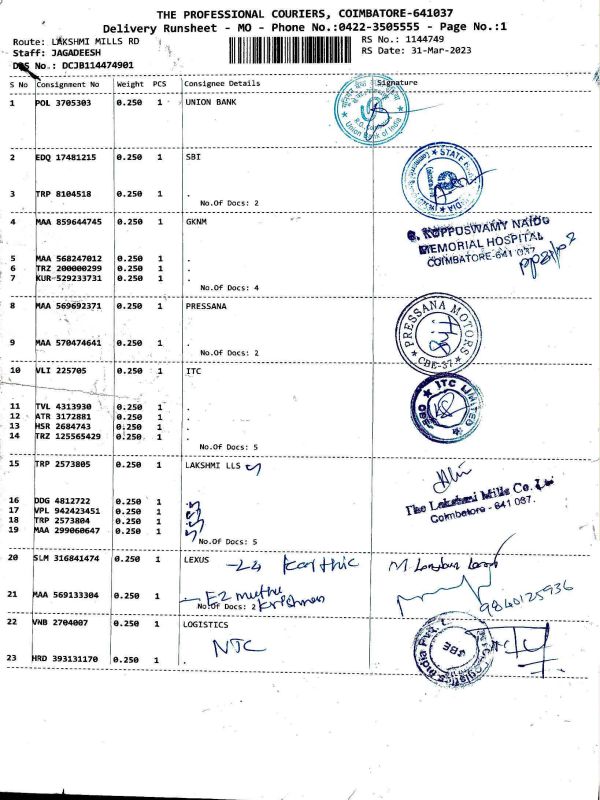 THE PROFESSIONAL COURIERS, COIMBATORE-641037
Delivery Runsheet - MO - Phone No.:0422-3505555 - Page No.:1
Route: LAKSHMI MILLS RD
RS No.: 1144749
Staff: JAGADEESH
RS Date: 31-Mar-2023
DRS No.: DCJB114474901
S No Consignment No Weight PCS Consignee Details Signature
1 POL 3705303 0.250 1 UNION BANK
Union Bank of India
2 EDQ 17481215 0.250 1 SBI
STATE
INDIA
3 TRP 8104518 0.250 1 .
No.Of Docs: 2
4 MAA 859644745 0.250 1 GKNM
G. KUPPUSWAMY NAIDU
MEMORIAL HOSPITAL
COIMBATORE-641 037
5 MAA 568247012 0.250 1 .
6 TRZ 200000299 0.250 1 .
7 KUR 529233731 0.250 1 .
No.Of Docs: 4
8 MAA 569692371 0.250 1 PRESSANA
PRESSANA MOTORS
CBE-37
9 MAA 570474641 0.250 1 .
No.Of Docs: 2
10 VLI 225705 0.250 1 ITC
ITC LIMITED
CBE
11 TVL 4313930 0.250 1 .
12 ATR 3172881 0.250 1 .
13 HSR 2684743 0.250 1 .
14 TRZ 125565429 0.250 1 .
No.Of Docs: 5
15 TRP 2573805 0.250 1 LAKSHMI LLS
The Lakshmi Mills Co. Ltd
Coimbatore - 641 037.
16 DDG 4812722 0.250 1 .
17 VPL 942423451 0.250 1 .
18 TRP 2573804 0.250 1 .
19 MAA 299060647 0.250 1
No.Of Docs: 5
20 SLM 316841474 0.250 1 LEXUS
Karthic
21 MAA 569133304 0.250 1
muthu
krishnan
No.Of Docs: 2
9840125936
22 VNB 2704007 0.250 1 LOGISTICS
NTC
CBE
23 HRD 393131170 0.250 1 .